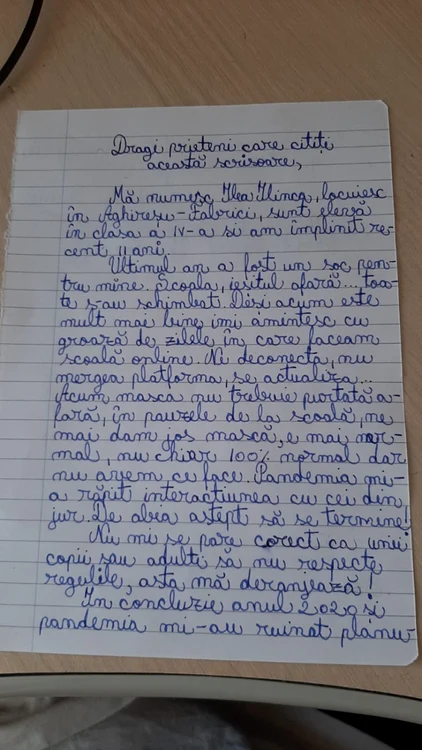 Dragi prieteni care citiți
această scrisoare,
Mă numesc Ilea Ilinca, locuiesc
în Aghireșu-Fabrici, sunt elevă
în clasa a IV-a si am împlinit re-
cent 11 ani.
Ultimul an a fost un șoc pen-
tru mine. Școala, ieșitul afară... toa-
te s-au schimbat. Deși acum este
mult mai bine, îmi amintesc cu
groază de zilele în care faceam
scoală online. Ne deconecta, nu
mergea platforma, se actualiza...
Acum masca nu trebuie purtată a-
fară, în pauzele de la scoală, ne
mai dam jos mască, e mai nor-
mal, nu chiar 100% normal dar
nu avem ce face. Pandemia mi-
a răpit interactiunea cu cei din
jur. De abia astept să se termine!
Nu mi se pare corect ca unii
copii sau adulti să nu respecte
regulile, asta mă deranjează!
În concluzie anul 2020 si
pandemia mi-au ruinat planu-